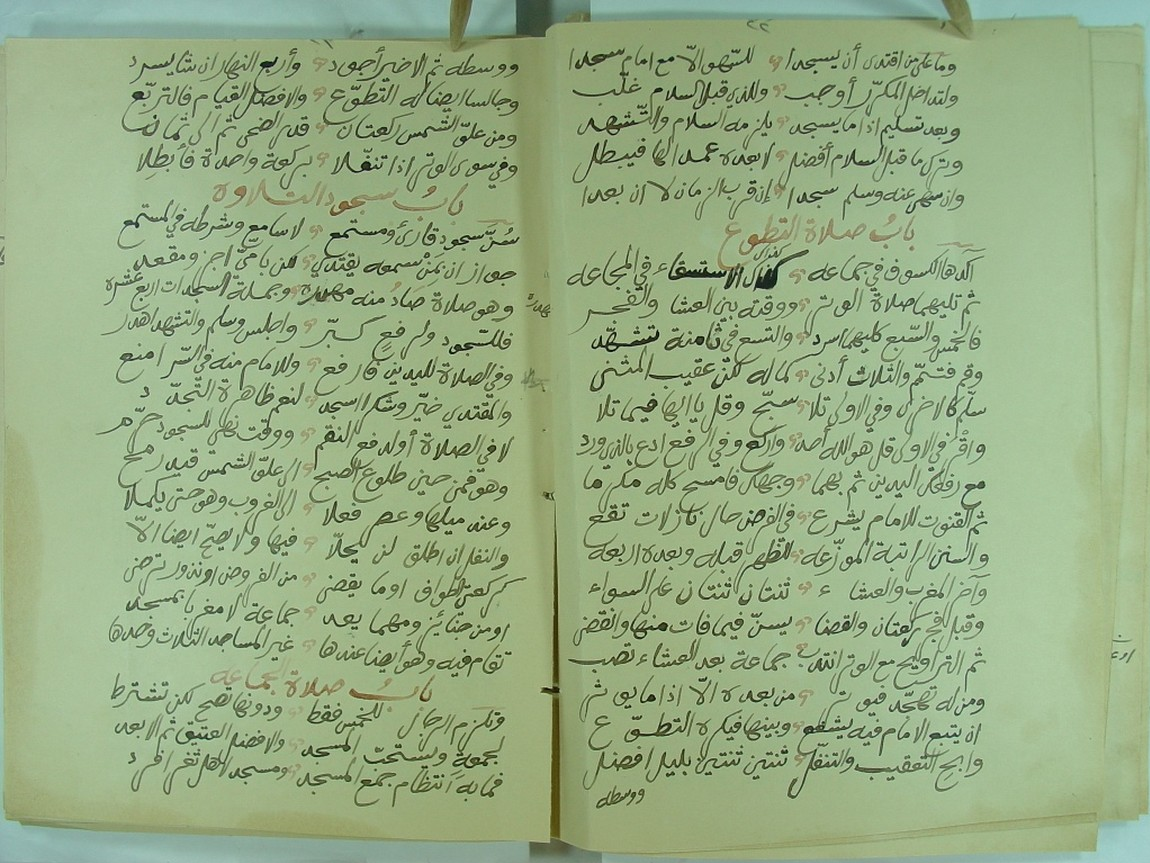 وما على من اقتدى أن يسجدا للسهو الا مع امام سجدا
ولتداخل المكرر أوجب وللذي قبل السلام غلب
وبعد تسليم اذا ما يسجد يلزمه السلام والتشهد
وترك ما قبل السلام أفضل لا بعده عمدا لها فيبطل
وان سهى عنه وسلم سجدا إن قرب الزمان لا ان بعدا
باب صلاة التطوع
آكدها الكسوف في جماعه كذاك الاستسقاء في المجاعه
ثم تليهما صلاة الوتر ووقته بين العشا والفجر
فالخمس والسبع كليهما اسرد والتسع في ثامنة تشهد
وقم فتمم والثلاث أدنى كماله لكن عقيب المثنى
سلم كالاخرى وفي الاولى تلا سبح وقل يا ايها فيما تلا
واقرأ في الاولى قل هو الله أحد واركع وفي الرفع ادع بالذي ورد
مع رفعك اليدين ثم بهما وجهك فامسح كله ملتزما
ثم القنوت للامام يشرع في الفرض حال نازلات تقع
والسنن الراتبة الموزعه للظهر قبله وبعده اربعه
وآخر المغرب والعشاء ثنتان ثنتان على السواء
وقبل فجر ركعتان والقضا يسن فيما فات منها وانقضى
ثم التراويح مع الوتر انتدب جماعة بعد العشاء تصب
ومن له تهجد فيوتر من بعده الا اذا ما يوثر
ان يتبع الامام فيه يشفع وبينها فيكره التطوع
وابح التعقيب والتنفل ثنتين ثنتين بليل افضل
ووسطه
ووسطه ثم الاخير أجود وأربع النهار ان شا يسرد
وجالسا ايضا له التطوع والافضل القيام فالتربع
ومن علو الشمس ركعتان قدر الضحى ثم الى ثمان
وفي سوى الوتر اذا تنفلا بركعة واحدة فأبطلا
باب سجود التلاوة
سن سجود قارئ ومستمع لا سامع وشرطه في المستمع
جواز ان بمن سمعه يقتدي لكن بامي اجز ومقعد
وهو صلاة صاد منه مهدره وجملة السجدات اربع عشره
فللسجود ولرفع كبر واجلس وسلم والتشهد اهدر
وفي الصلاة لليدين فارفع وللامام منه في السر امنع
والمقتدي خير وشكرا اسجد لنعم ظاهرة التجدد
لا في الصلاة أو لدفع النقم ووقت نهي للسجود حرم
وهو فمن حين طلوع الصبح الى علو الشمس قيد رمح
وعند ميلها وعصر فعلا الى الغروب وهو حتى يكملا
والنفل ان اطلق لن يحلا فيها ولا يصح ايضا الا
كركعتي الطواف او ما يقضى من الفروض او نذور ترضى
او من جنائز ومهما يعد جماعة لا مغربا بمسجد
تقام فيه وهو أيضا عندها غير المساجد الثلاث وحدها
باب صلاة الجماعه
وتلزم الرجال للخمس فقط ودونها تصح لكن تشترط
لجمعة ويستحب المسجد والافضل العتيق ثم الابعد
فما به انتظام جمع المسجد ومسجد لاهل ثغر افرد
مهدرة